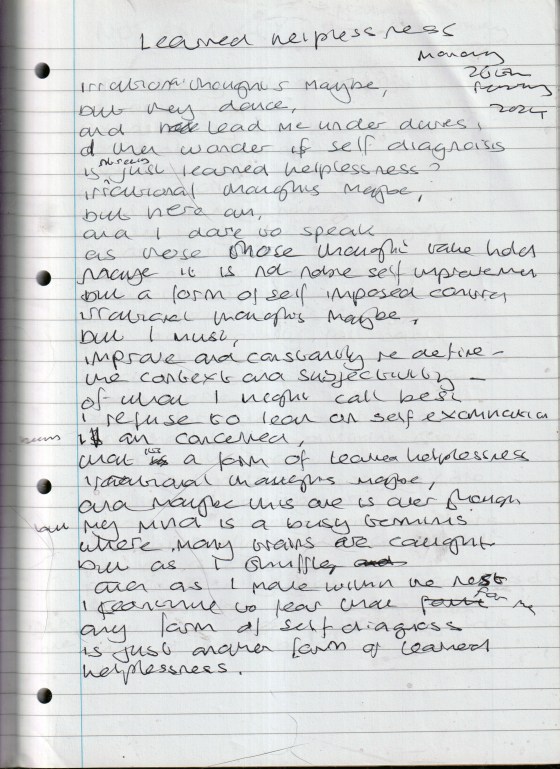 Learned helplessness
Monday
26th
2024
irrational thoughts maybe,
but they dance,
and lead me under duress,
I then wonder if self diagnosis
is just learned helplessness?
irrational thoughts maybe,
but here am,
and I dare to speak
as those those thoughts take hold
maybe it is not noble self improvement
but a form of self imposed control
irrational thoughts maybe,
but I must,
improve and constantly re define -
the context and subjectivity -
of what I might call best
I refuse to lean on self examination
am concerned,
that is a form of learned helplessness
irrational thoughts maybe,
and maybe this one is over though
but my mind is a busy terminus
where many trains are caught
but as I shuffle, and
and as I make within the rest
I to fear that for me
any form of self diagnosis
is just another form of learned
helplessness.